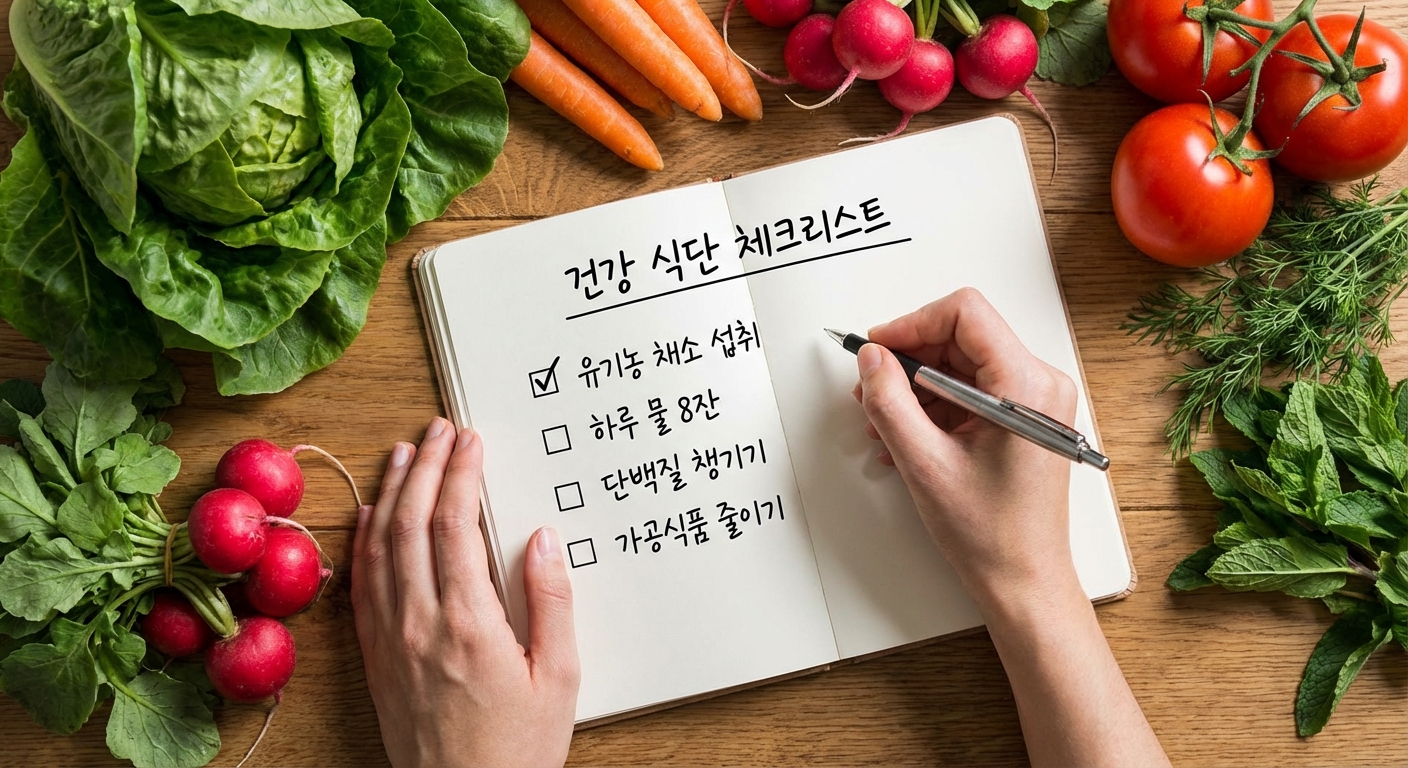 건강 식단 체크리스트
유기농 채소 섭취
하루 물 8잔
단백질 챙기기
가공식품 줄이기